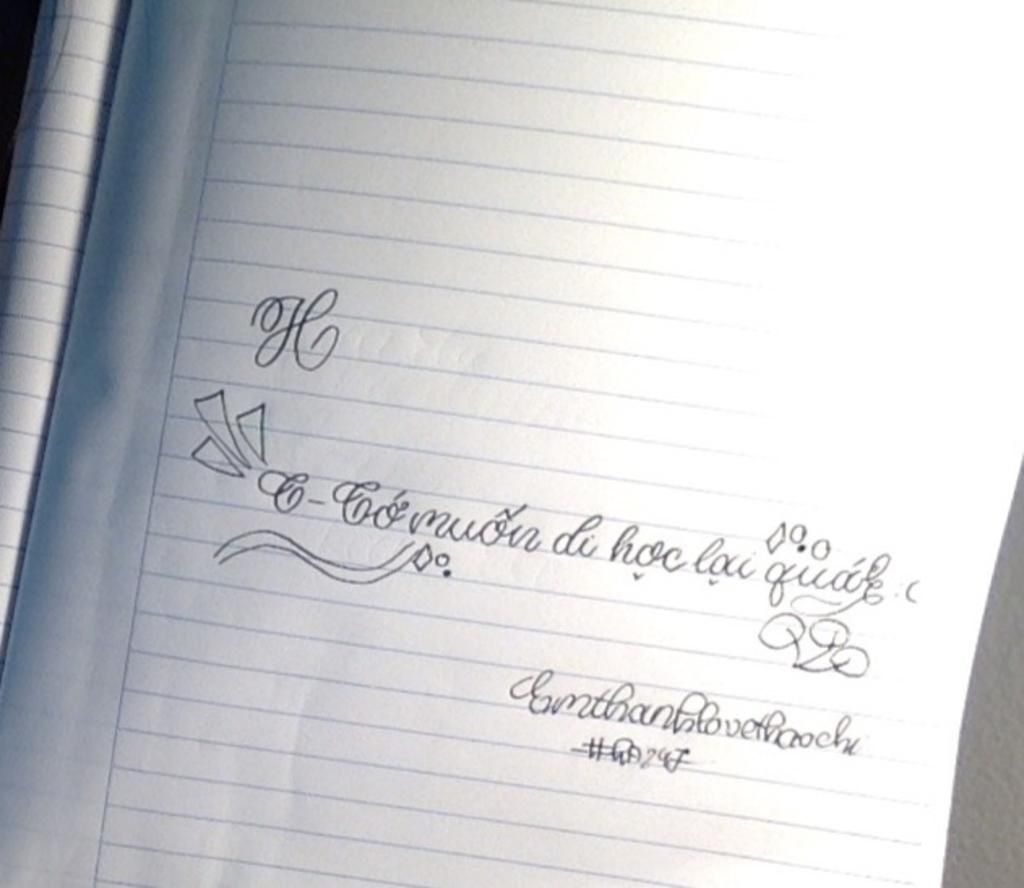 H
T-Tớ muốn đi học lại quá :(
Emthanhlovethaochi